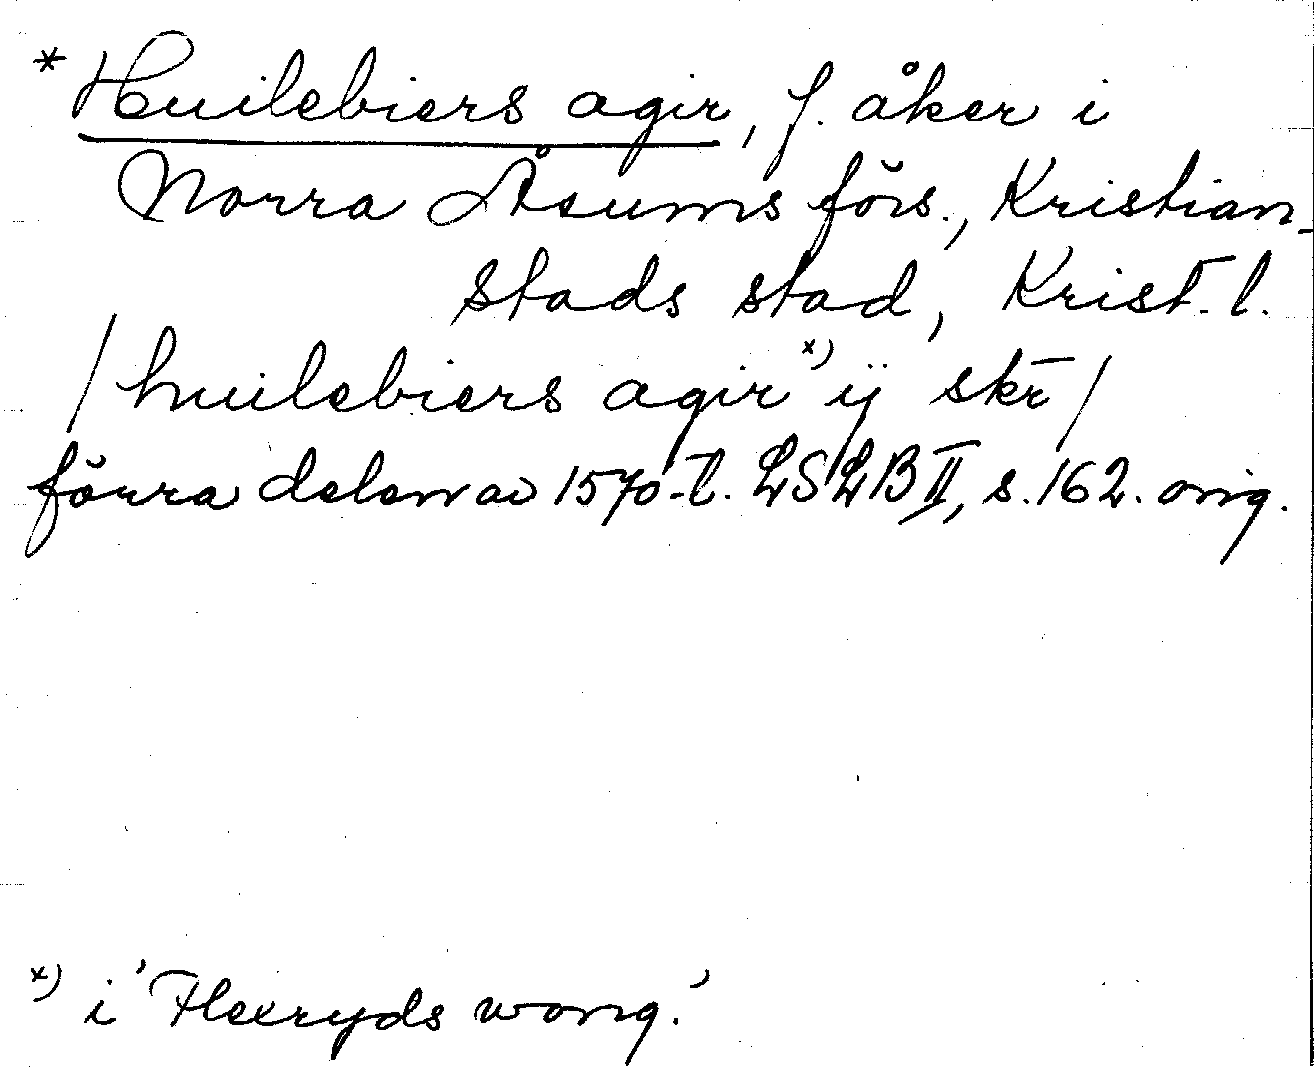 * Huilebiers agir, f. åker i
Norra Åsums förs., Kristian-
stads stad, Krist. l.
/ huilebiers agir x) ij skr /
förra delen av 1570-t. LSLB II, s. 162. orig.
x) i 'Flexryds wong.'